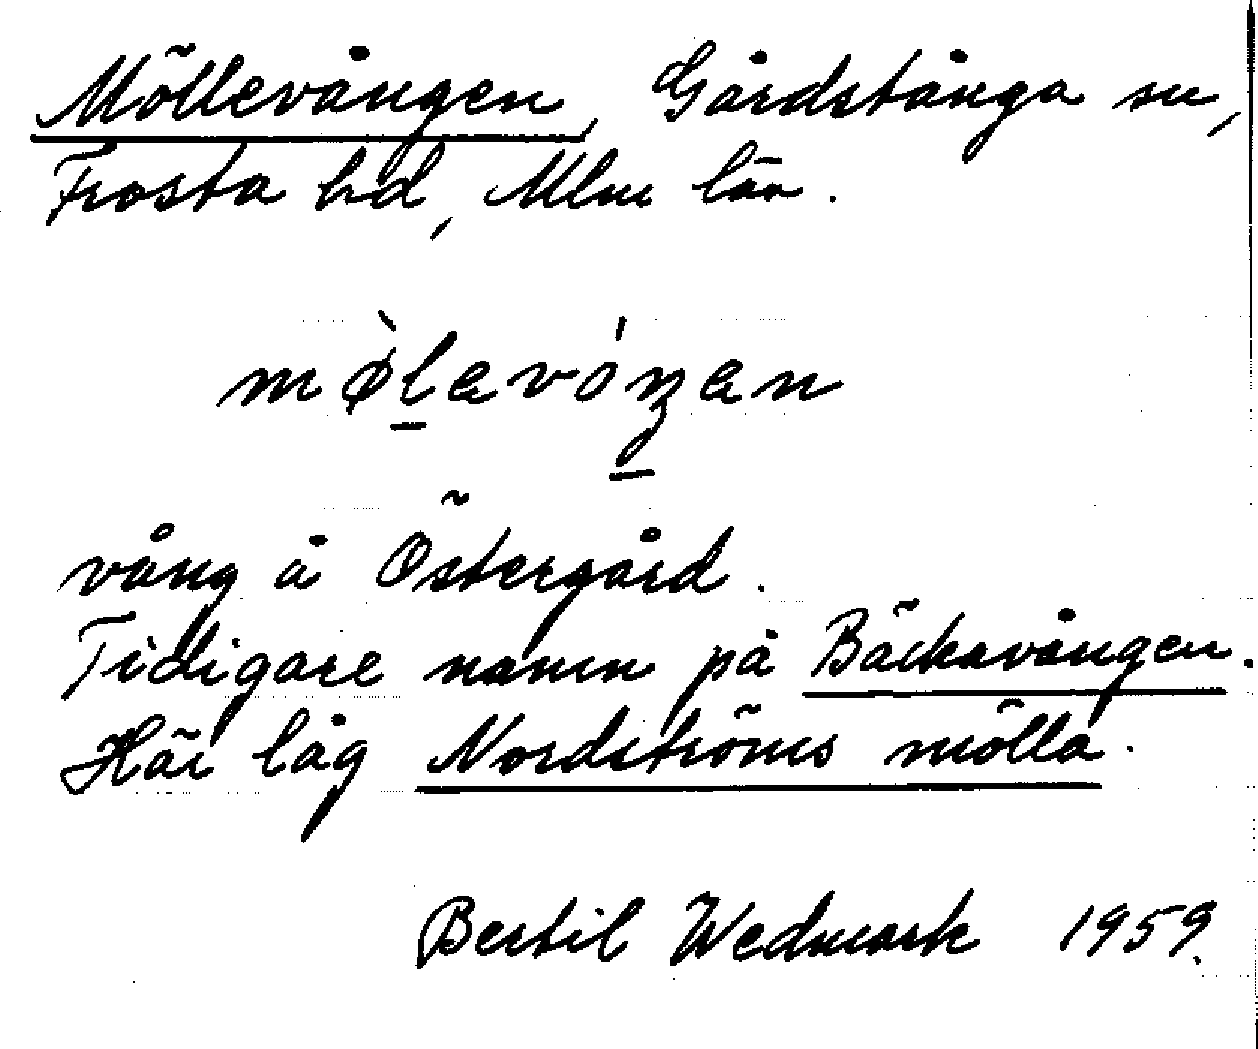 Möllevången, Gårdstånga sn,
Frosta hd, Mlm län.
mø̀lavóŋan
vång å Östergård.
Tidigare namn på Bäckavången.
Här låg Nordströms mölla.
Bertil Wedmark 1959.